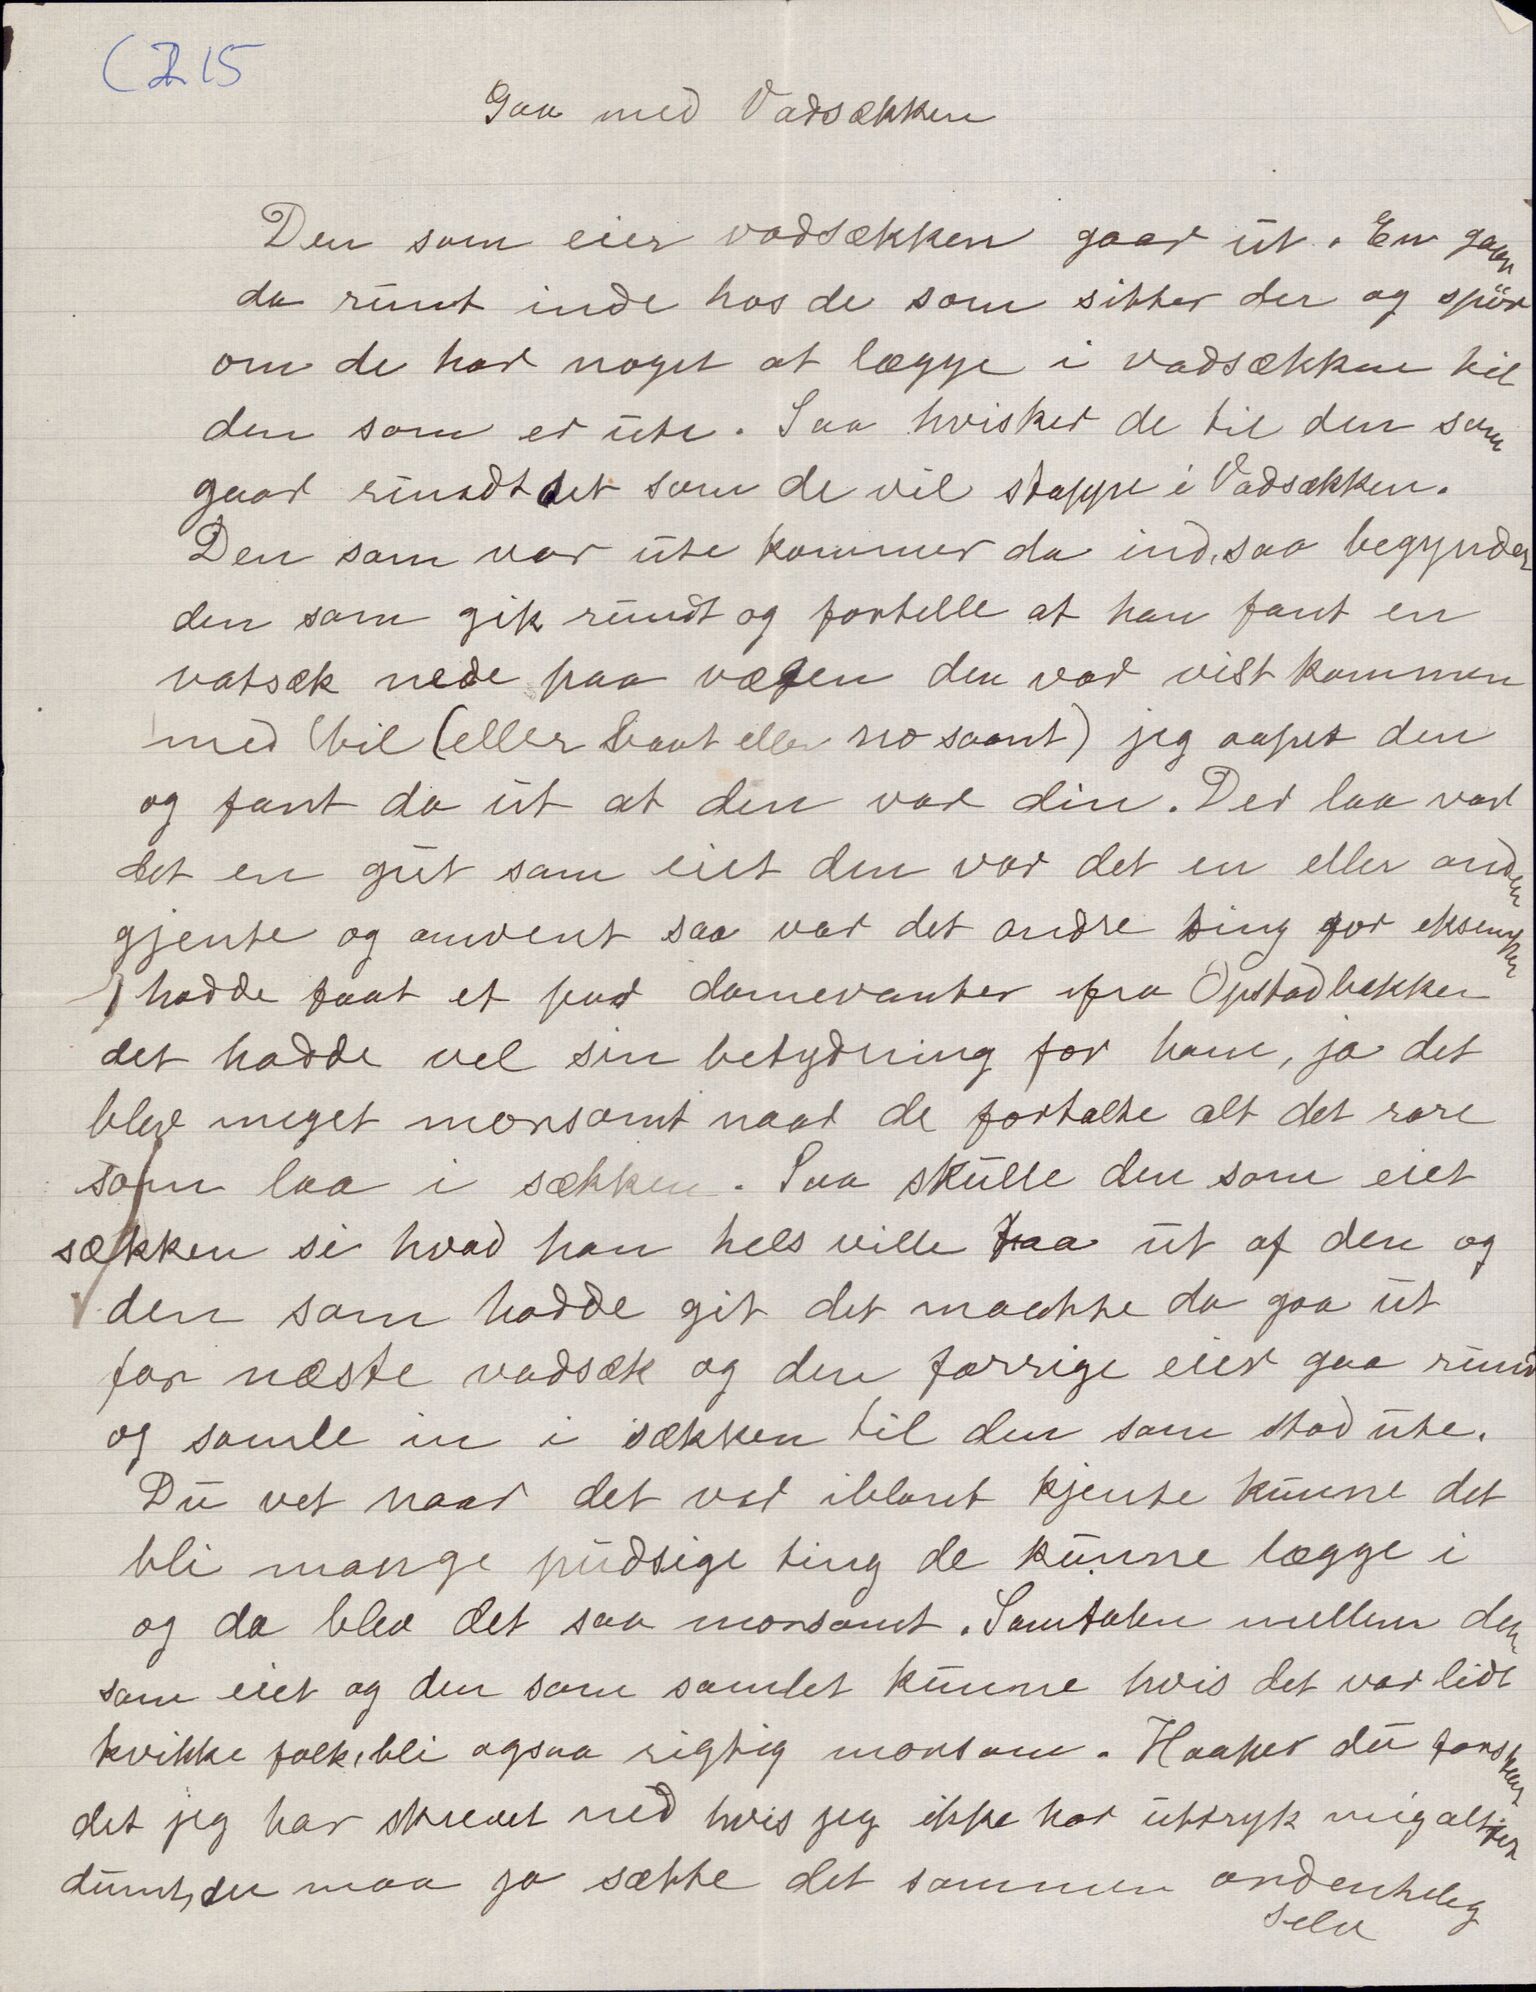 (215
Gaa med Vadsækken
Den som eier vadsækken gaar ut. En gaar
da runt inde hos de som sitter der og spör
om de har noget at lægge i vadsækken til
den som er ute. Saa hvisker de til den som
gaar rundt det som de vil stappe i Vadsækken.
Den som var ute kommer da ind, saa begynder
den som gik rundt og fortelle at han fant en
vatsæk nede paa vægen den var vist kommen
med bil (eller baat eller no saant) jeg aapet den
og fant da ut at den var din. Der laa var
det en gut som eiet den var det en eller anden
gjente og omvent saa var det andre ting for eksempel
hadde faat et par damevanter fra Opstadbækken
det hadde vel sin betydning for ham, ja det
blev meget morsomt naar de fortalte alt det rare
som laa i sækken. Saa skulle den som eiet
sækken si hvad han hels ville haa ut af den og
den som hadde git det maatte da gaa ut
for næste vadsæk og den forrige eier gaa rund
og samle in i sækken til den som stod ute.
Du vet naar det var iblant kjente kunne det
bli mange pudsige ting de kunne lægge i
og da blev det saa morsomt. Samtalen mellem den
som eiet og den som samlet kunne hvis det var lidt
kvikke folk, bli ogsaa rigtig morsom. Haaper du forstaar
det jeg har skrevet ned hvis jeg ikke har uttryk mig altfor
dumt, du maa jo sætte det sammen ordentlig
selv